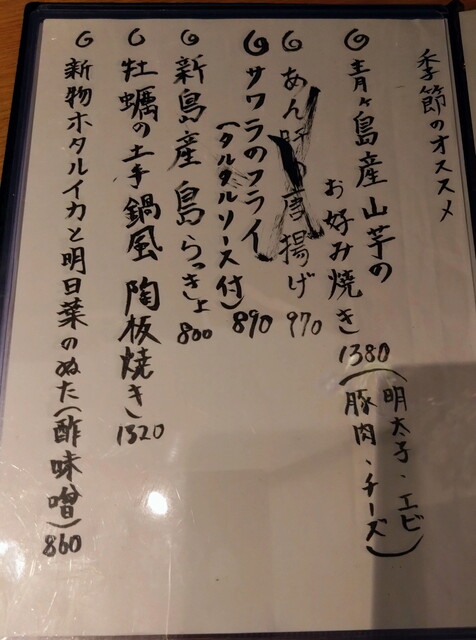 季節のオススメ
◎ 青ヶ島産山芋の
お好み焼き 1380
(明太子・エビ
豚肉・チーズ)
◎ あん肝の唐揚げ 970
◎ サワラのフライ
(タルタルソース付) 890
◎ 新島産 島らっきょ 800
◎ 牡蠣の土手鍋風 陶板焼き 1320
◎ 新物ホタルイカと明日葉のぬた(酢味噌) 860